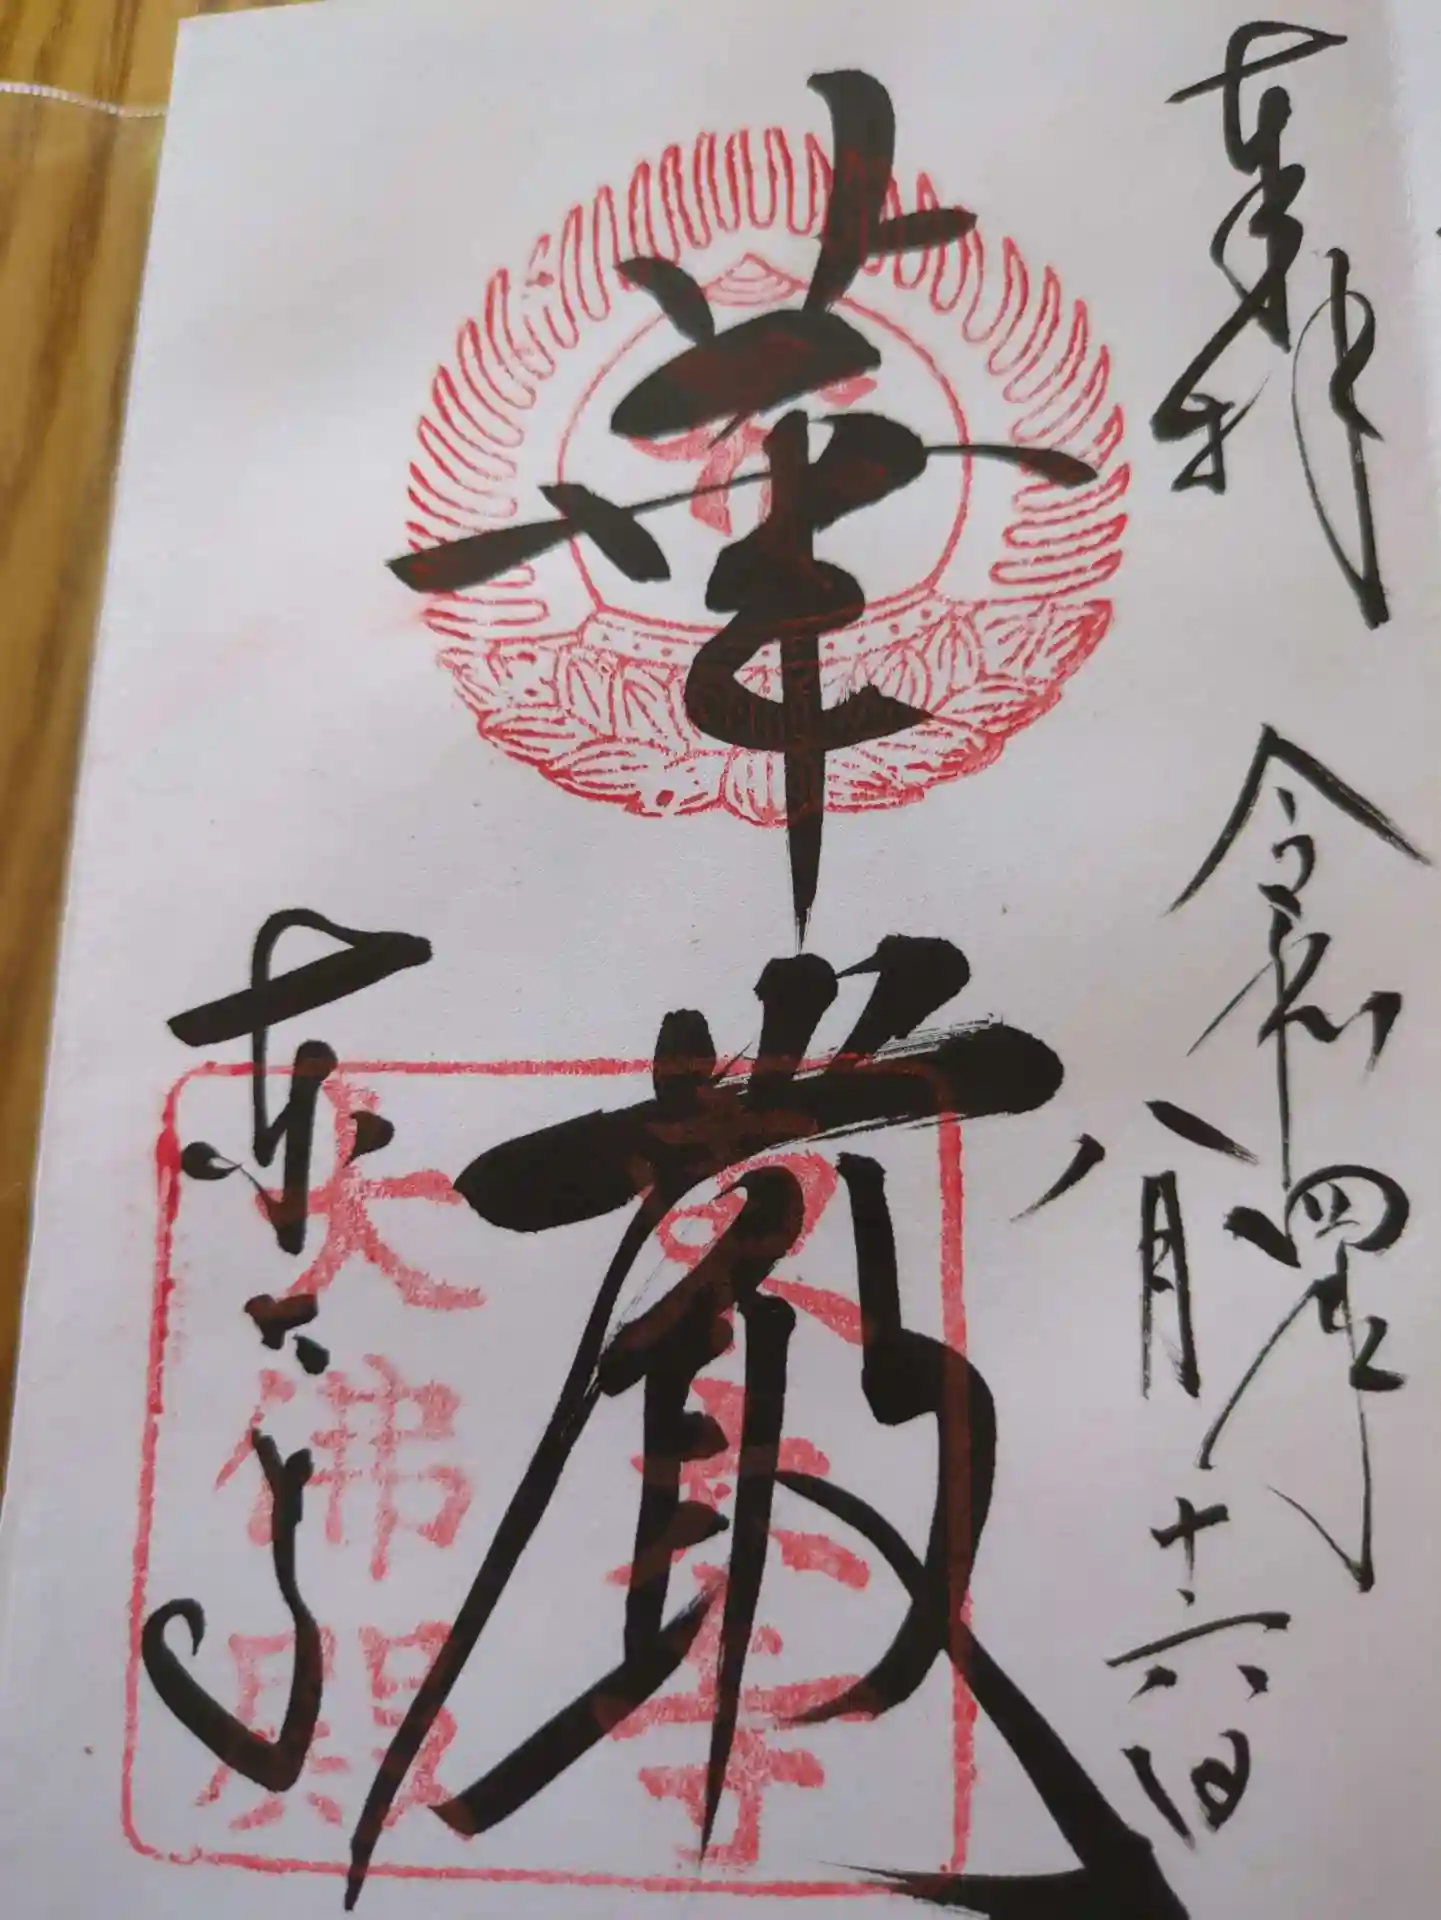 奉拝
令和四年
八月十六日
華厳
東大寺
東大寺
大佛殿